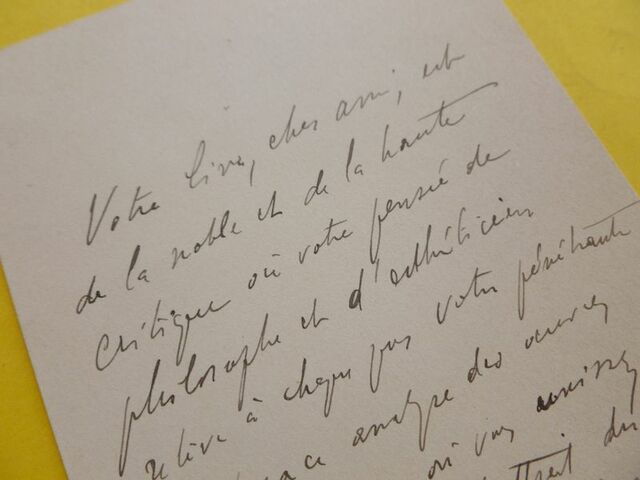 Votre livre, cher ami, est
de la noble et de la haute
critique où votre pensée de
philosophe et d'esthéticien
relève à chaque pas votre pénétrante
analyse des œuvres
où vous